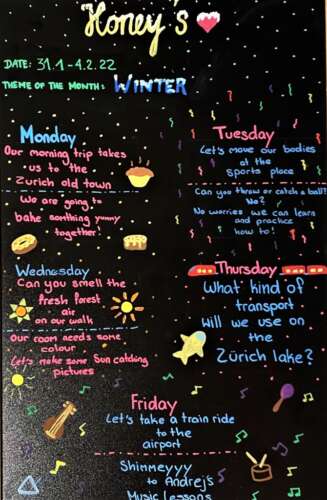 Honey's
DATE: 31.1-4.2.22
THEME OF THE MONTH: WINTER
Monday
Our morning trip takes
us to the
Zurich old town
We are going to
bake somthing yummy
together!
Tuesday
Let's move our bodies
at the
Sports place
Can you throw or catch a ball?
No?
No worries we can learn
and practice
how to!
Wednesday
Can you smell the
fresh forest
air
on our walk
Our room needs some
colour
Let's make some Sun catching
pictures
Thursday
What kind of
transport
Will we use on
the
Zürich lake?
Friday
Let's take a train ride
to the
airport
Shimmeyyy
to Andrejs
Music Lessons